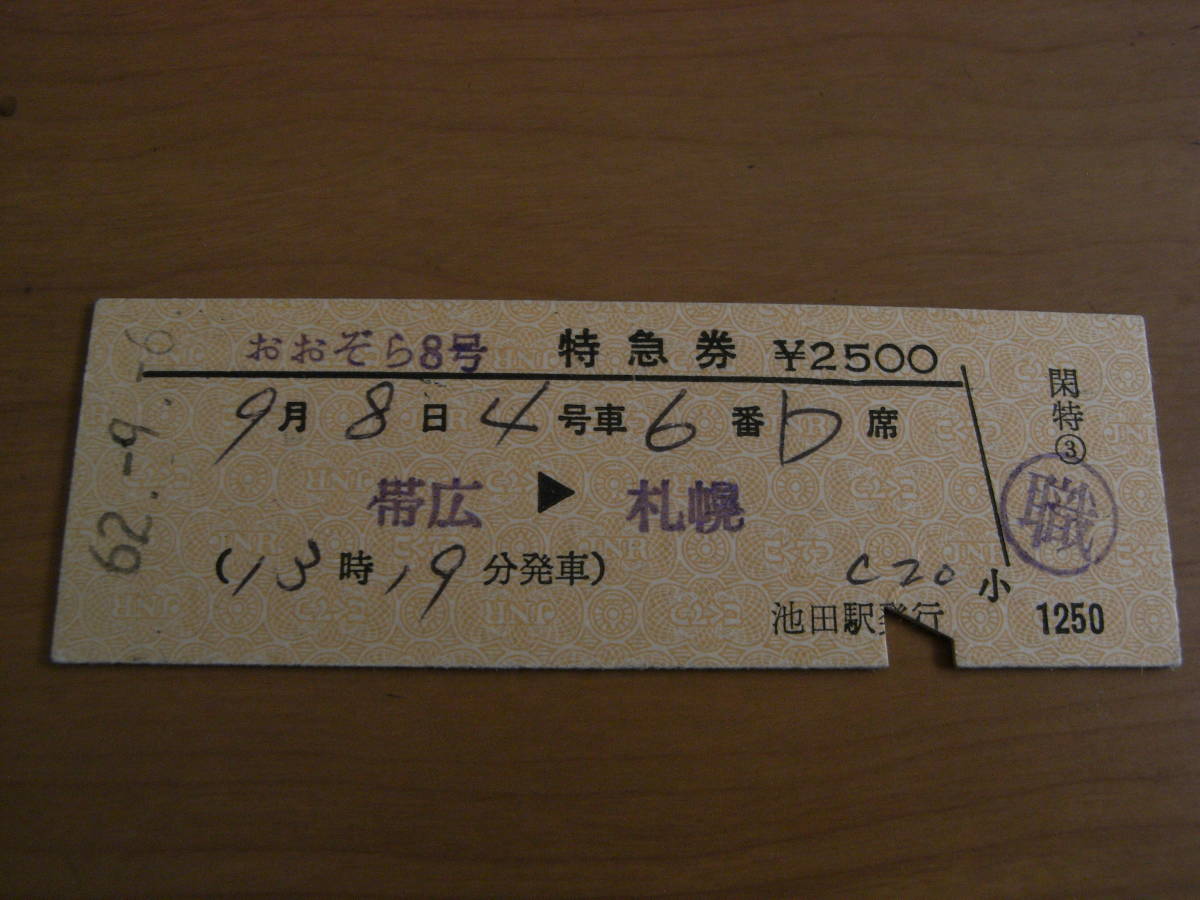 おおぞら8号 特急券 ¥2500
9月8日4号車6番D席
帯広▶札幌
(13時19分発車)
C20 小
池田駅発行
閑特③
職
1250
62.-9.-6